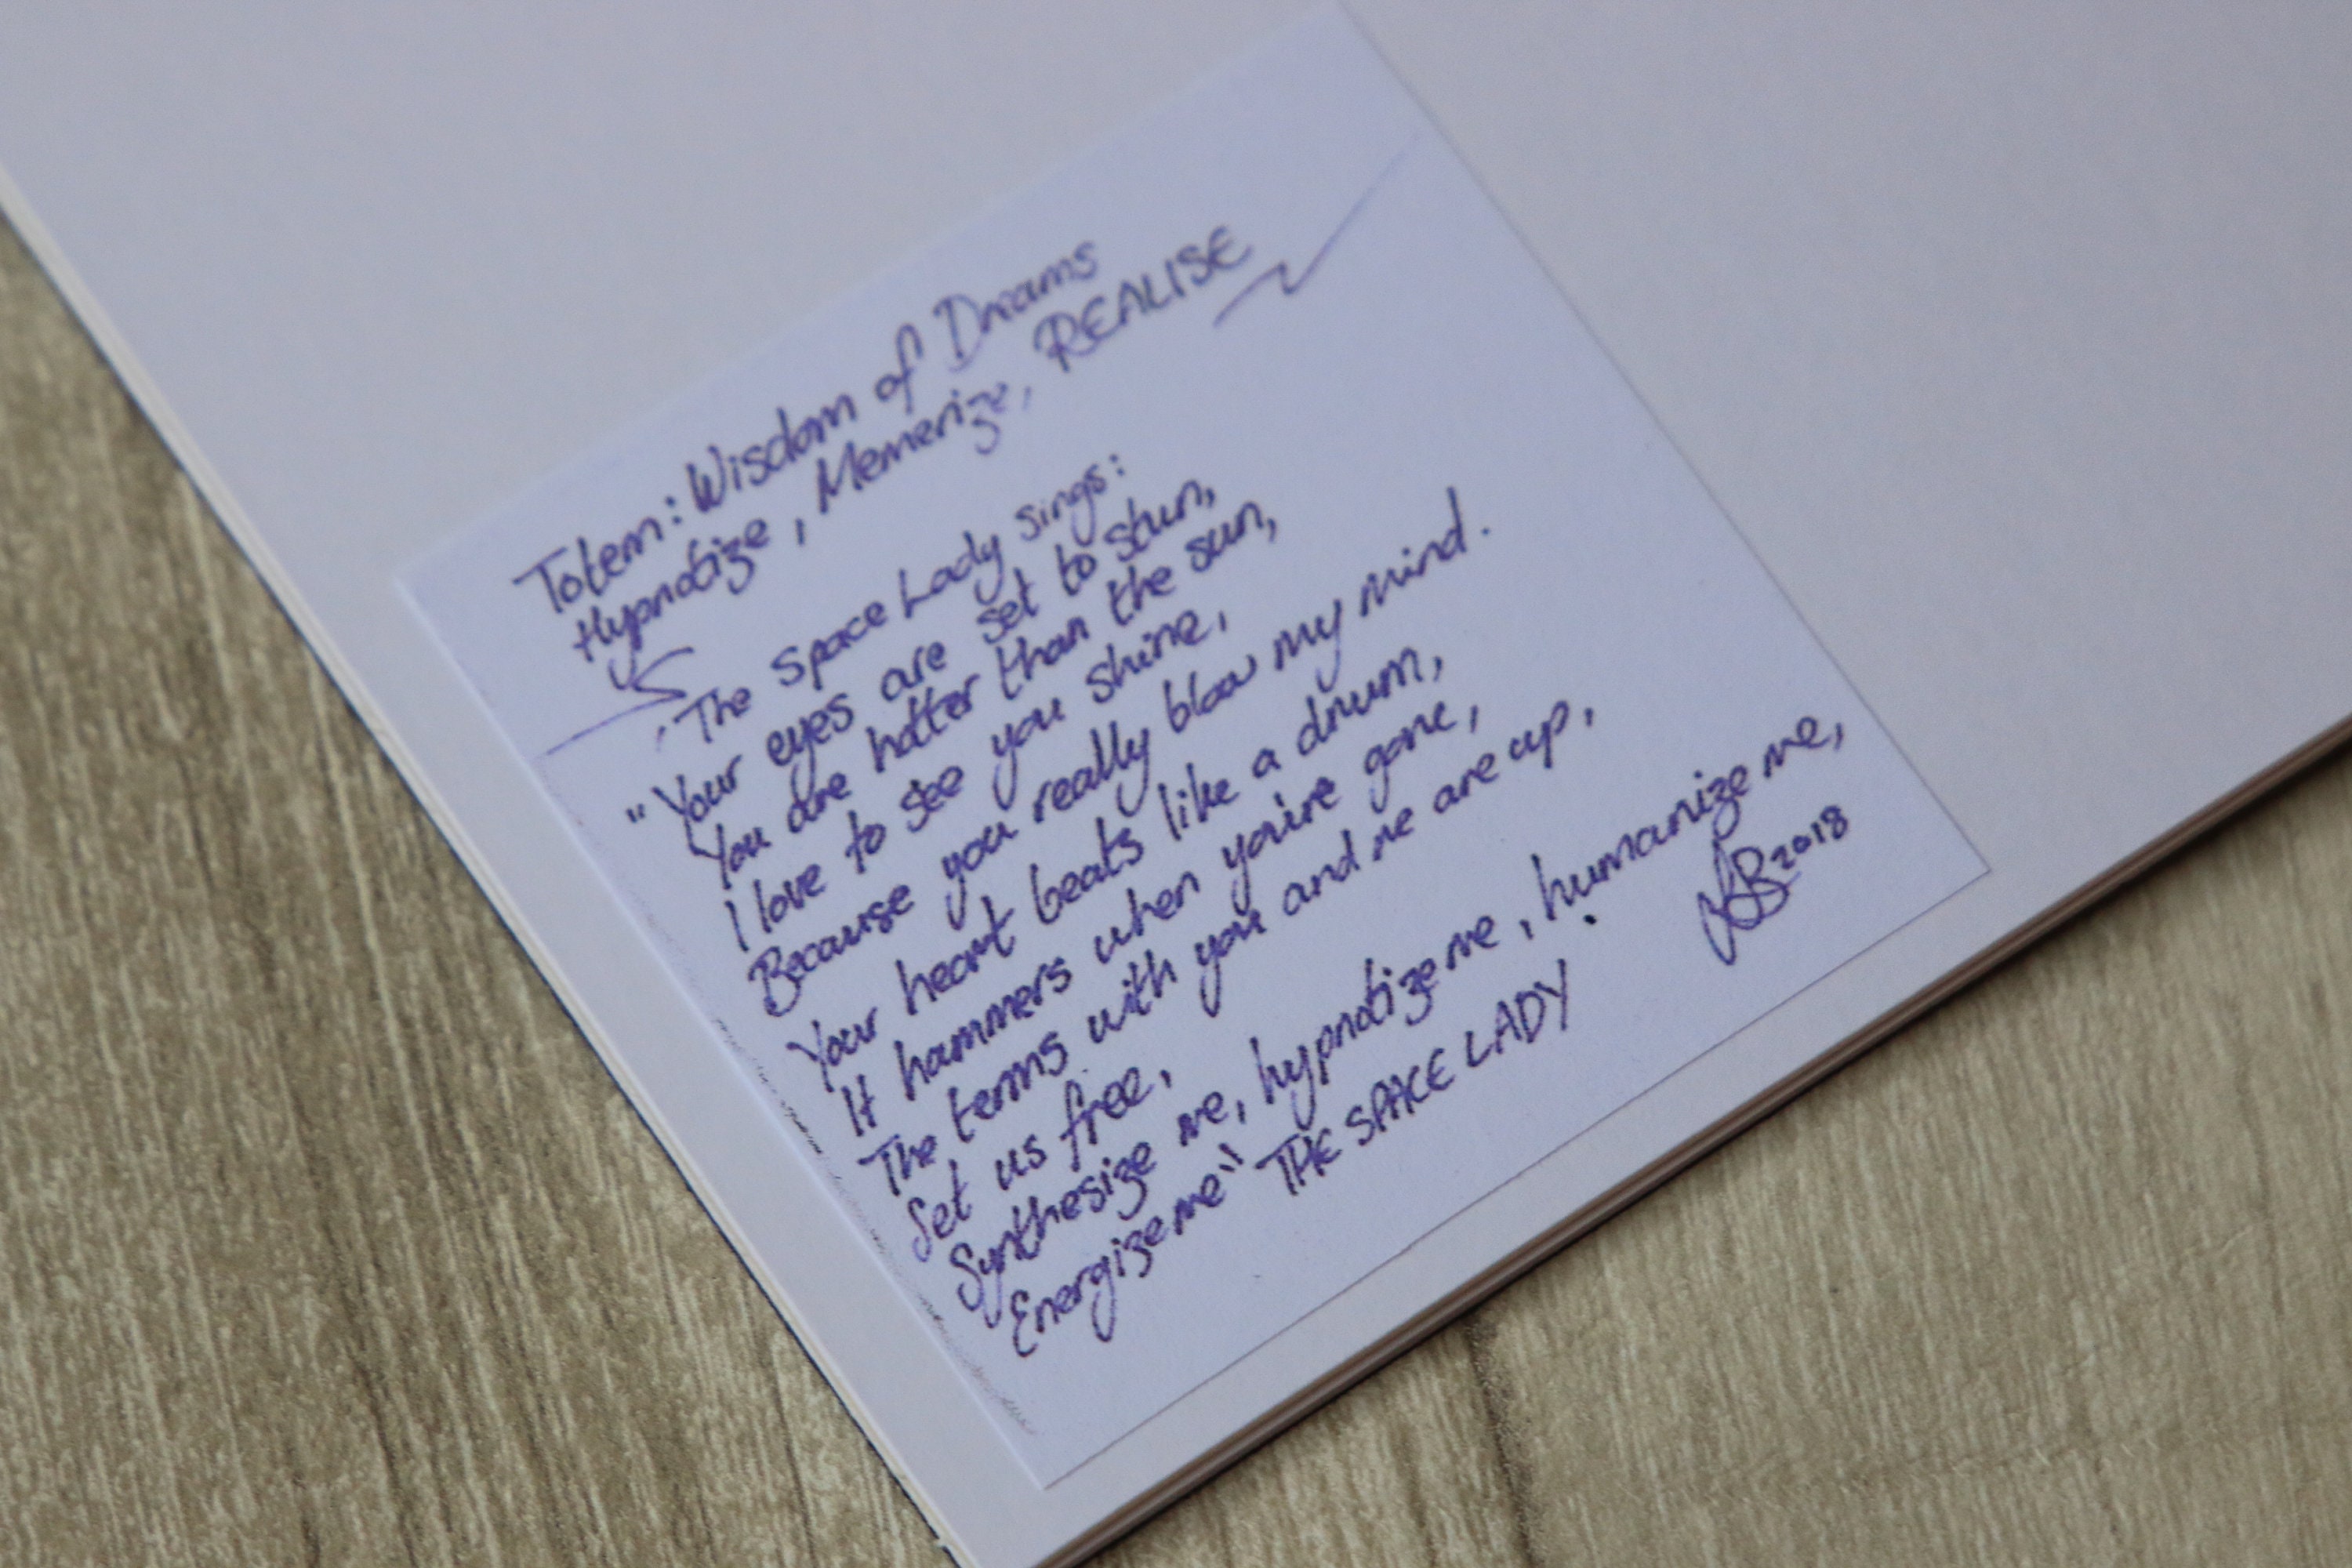 Totem: Wisdom of Dreams
Hypnotize, Memerize, REALISE
The Space Lady sings:
"Your eyes are set to stun,
You are hotter than the sun,
I love to see you shine,
Because you really blow my mind.
Your heart beats like a drum,
It hammers when you're gone,
The terms with you and me are up,
Set us free,
Synthesize me, hypnotize me, humanize me,
Energize me" THE SPACE LADY
2018